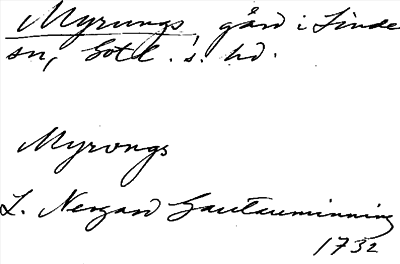 Myrungs, gård i Linde
sn, Gotl. s. hd.
Myrongs
L. Nergard Gautauminning
1732